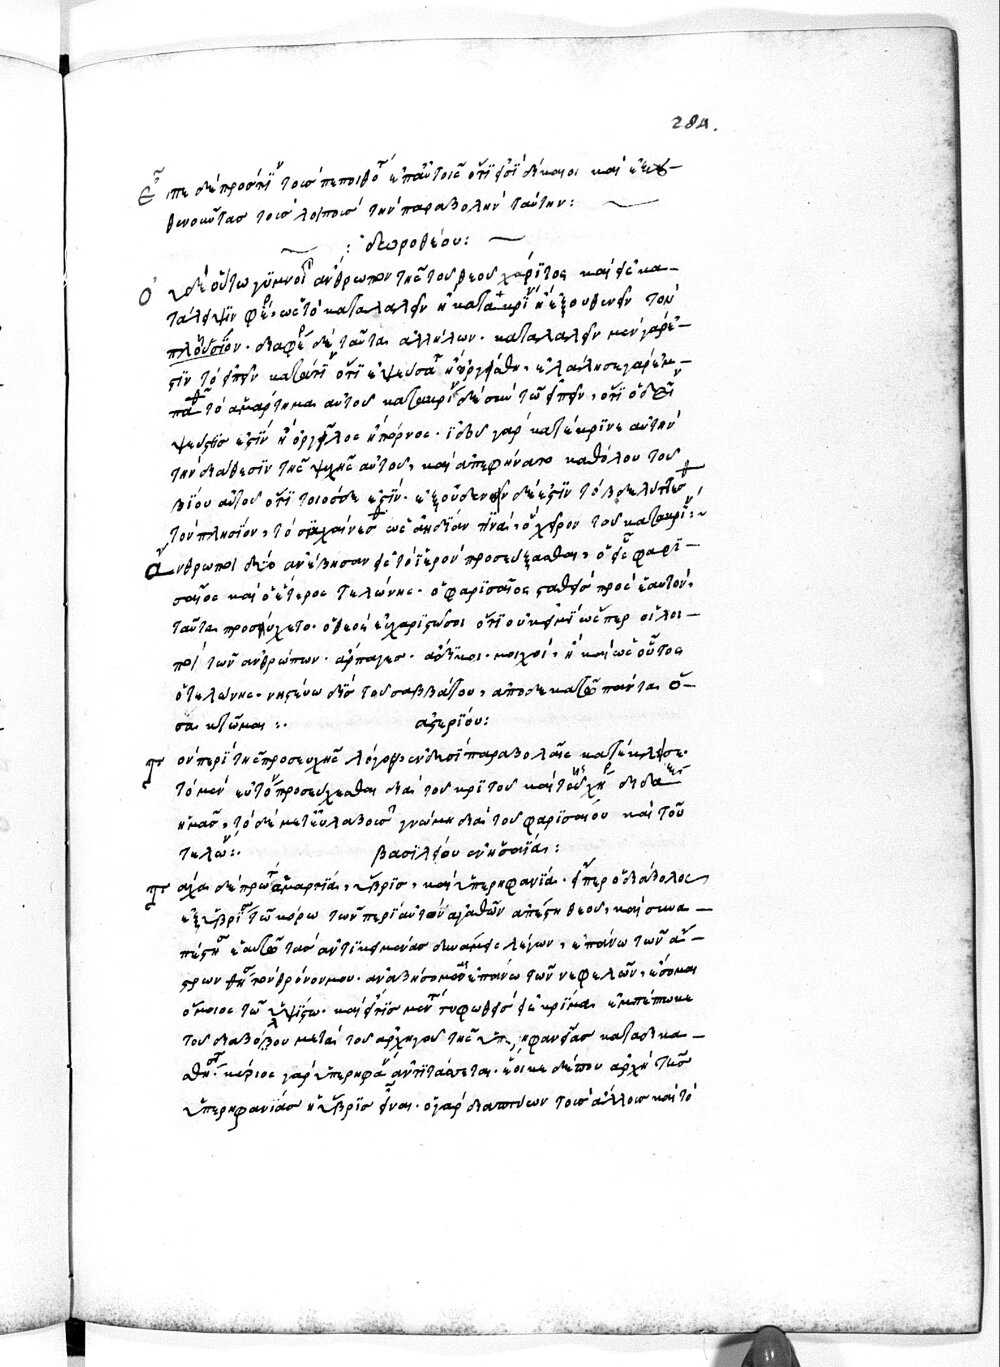 284.
Εἶπε δὲ πρός τιν τοὺς πεποιθότ ἐφ' ἑαυτοῖς ὅτι εἰσὶ δίκαιοι καὶ ἐξου–
θενοῦντας τοὺς λοιποὺς τὴν παραβολὴν ταύτην:
: δωροθέου:
Ὁ δὲ οὕτω γυμνοῖ ἄνθρωπον τῆς τοῦ θεοῦ χάριτος καὶ εἰς κα–
τάλειψιν φέρ, ὡς τὸ καταλαλεῖν ἢ κατακρίν ἢ ἐξουθενεῖν τὸν
πλησίον. διαφέρ δὲ ταῦτα ἀλλήλων. καταλαλεῖν μὲν γάρ ἐ–
στιν τὸ εἰπεῖν κατά τιν ὅτι ἐψεύσατ ἢ ὠργίσθη, ἐλάλησε γὰρ ἐμ–
παθ τὸ ἁμάρτημα αὐτοῦ κατακρίν δέ τὸ εἰπεῖν, ὅτι ὁ δεῖν
ψεύστης ἐστὶν ἢ ὀργίλος ἢ πόρνος. ἰδοὺ γὰρ κατέκρινε αὐτὴν
τὴν διάθεσιν τῆς ψυχῆς αὐτοῦ, καὶ ἀπεφήνατο καθόλου τοῦ
βίου αὐτοῦ ὅτι τοιόσδε ἐστίν. ἐξουδενεῖν δέ ἐστιν τὸ βδελύττεσθ
τὸν πλησίον, τὸ σικχαίνεσθ ὡς ἀηδίαν τινά, ὃ χεῖρον τοῦ κατακρίν:
ἄνθρωποι δύο ἀνέβησαν εἰς τὸ ἱερὸν προσεύξασθαι, ὁ εἷς φαρι–
σαῖος καὶ ὁ ἕτερος τελώνης. ὁ φαρισαῖος σταθεὶς πρὸς ἑαυτὸν,
ταῦτα προσηύχετο. ὁ θεὸς εὐχαριστῶ σοι ὅτι οὐκ εἰμὶ ὥσπερ οἱ λοι–
ποὶ τῶν ἀνθρώπων. ἅρπαγες. ἄδικοι. μοιχοί. ἢ καὶ ὡς οὗτος
ὁ τελώνης. νηστεύω δὶς τοῦ σαββάτου, ἀποδεκατῶ πάντα ὅ–
σα κτῶμαι:.    ἀστερίου:
Τὸν περὶ τῆς προσευχῆς λόγον, ἐν δυσὶ παραβολαῖς κατέκλεισε.
τὸ μὲν εὔτον προσεύχεσθαι διὰ τοῦ κριτοῦ καὶ τῆς χήρ διδάξ
ἡμᾶς, τὸ δὲ μετ' εὐλαβοῦς γνώμης διὰ τοῦ φαρισαίου καὶ τοῦ
τελών:.    βασιλείου ἐν ἡσαΐα:
Τάχα δὲ πρῶτ ἁμαρτία, ὕβρις, καὶ ὑπερηφανία. ἥπερ ὁ διάβολος
ἐξυβρίσ τῷ κόρω τῶν περὶ αὐτὸν ἀγαθῶν ἀπέστη θεοῦ, καὶ συνα–
πέστησ ἑαυτῷ τὰς ἀντικειμένας δυνάμεις λέγων, ἐπάνω τῶν ἄ–
στρων θήσ τὸν θρόνον μου. ἀναβήσομαι ἐπάνω τῶν νεφελῶν, ἔσομαι
ὅμοιος τῷ ὑψίστω. καὶ τυφωθεὶς εἰς κρίμα ἐμπέπτωκε
τοῦ διαβόλου μετὰ τοῦ ἀρχηγοῦ τῆς ὑπερηφανείας καταδικα–
σθήσ. κύριος γὰρ ὑπερηφάν ἀντιτάσσεται. ἔοικε δέ που ἀρχὴ τῆς
ὑπερηφανίας ἡ ὕβρις εἶναι. ὁ γὰρ διαπτύων τοὺς ἄλλους καὶ τὸ